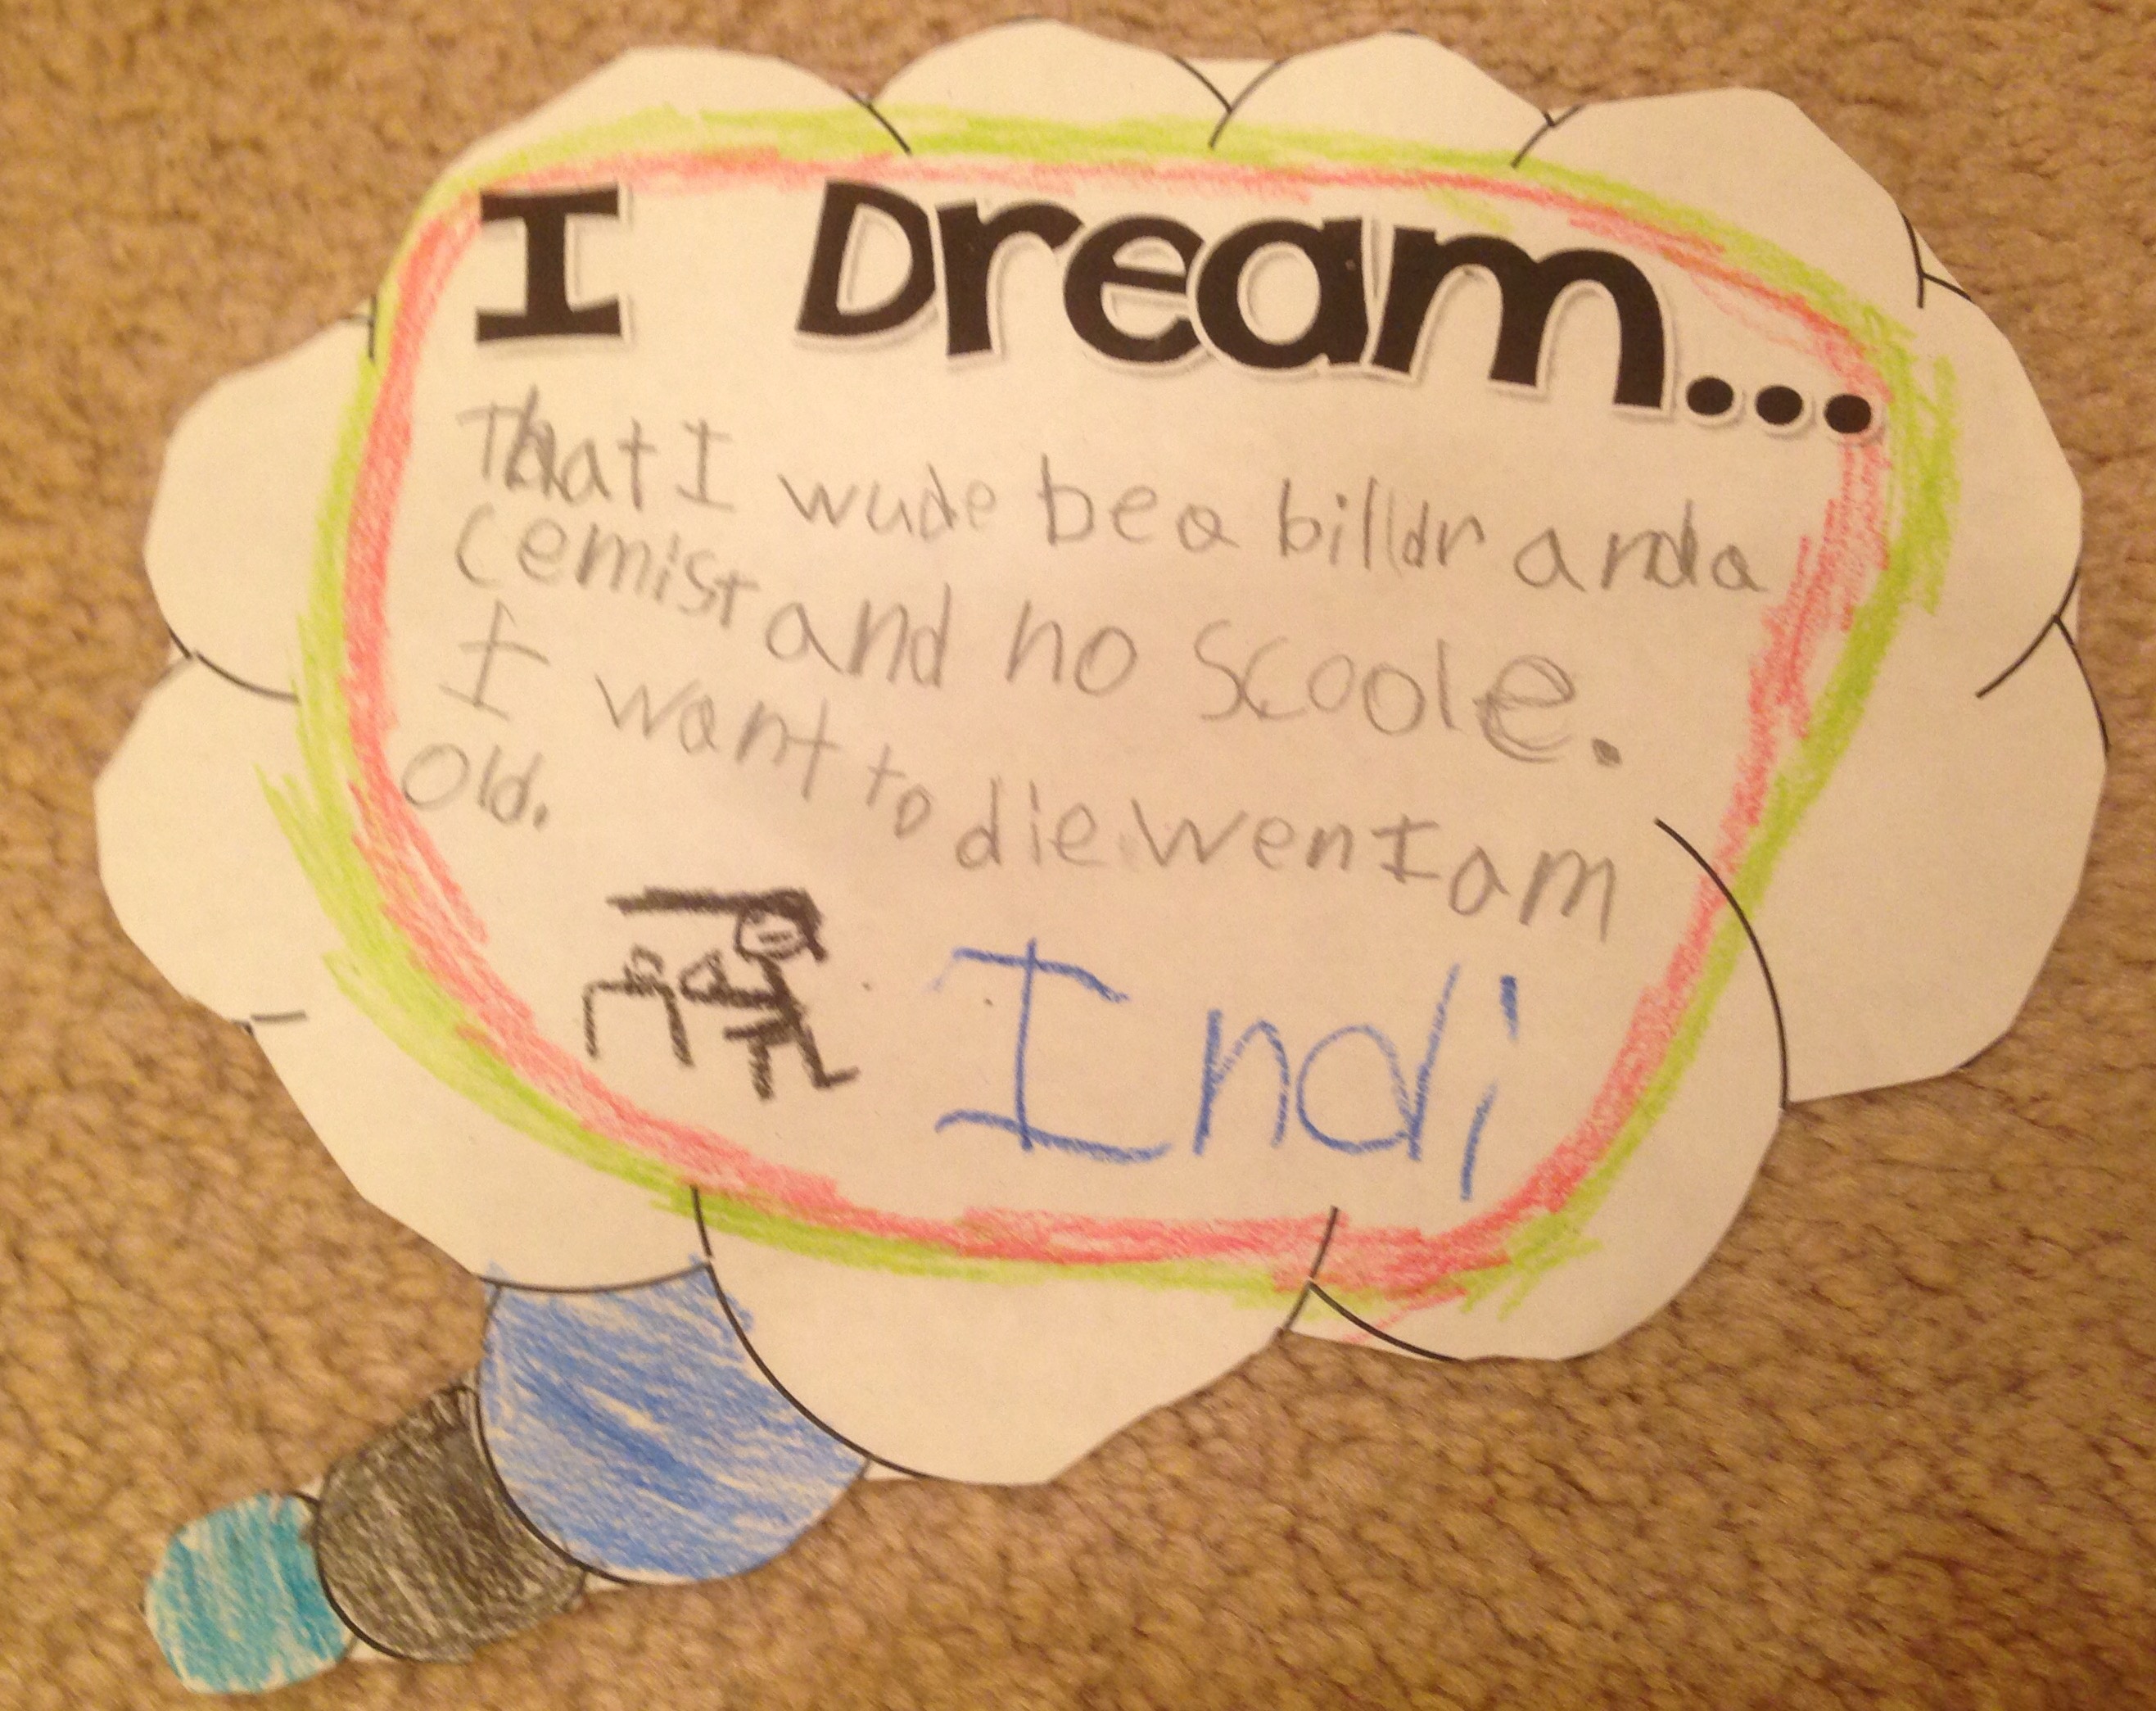 I Dream...
That I wude be a billdr and a
cemist and no scoole.
I want to die wen I am
old.
Indi